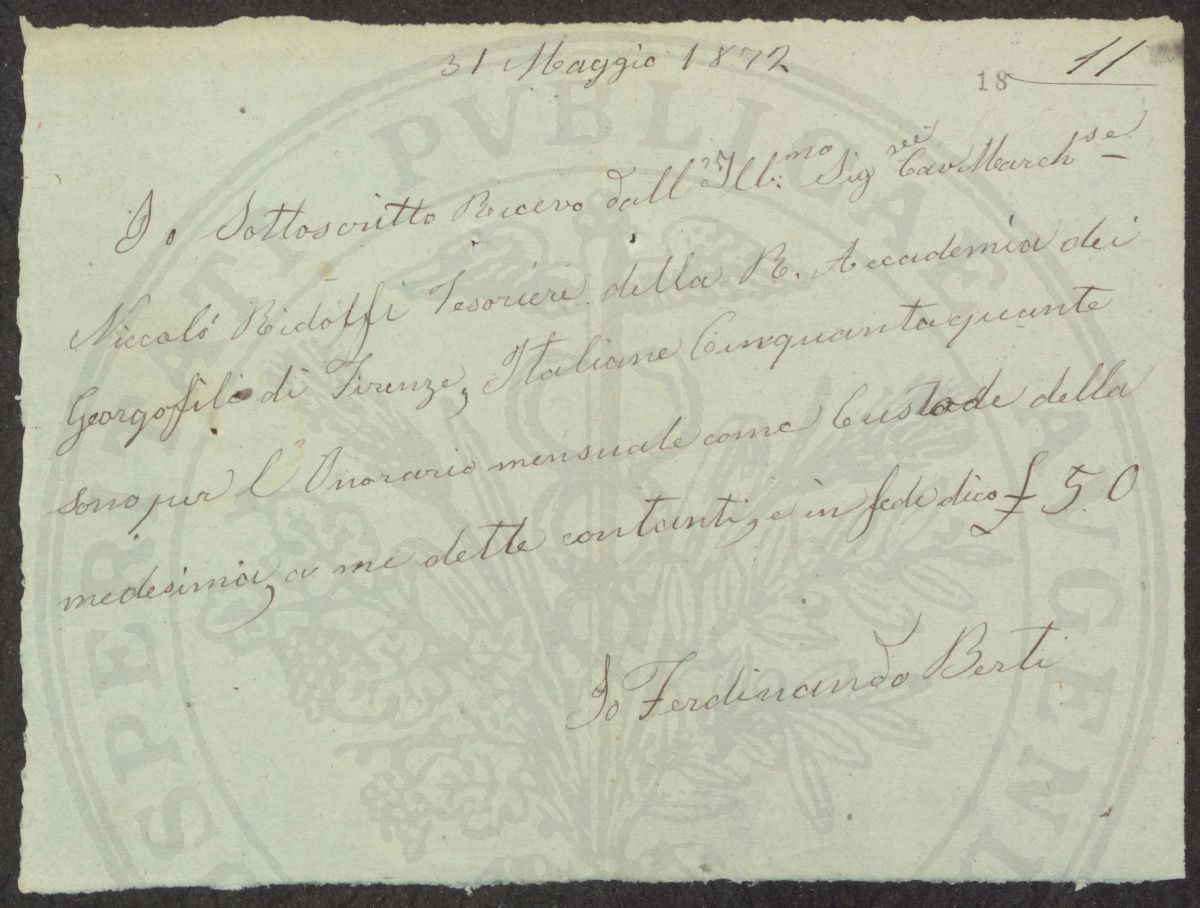 31 Maggio 1872
18 11
Io Sottoscritto Ricevo dall'Ill:mo Sig Cav March:se
Niccolò Ridolfi Tesoriere della R. Accademia dei
Georgofili di Firenze, Italiane Cinquanta quante
sono per l Onorario mensuale come Custode della
medesima, a me dette contanti, e in fede dico £ 50
Io Ferdinando Berti